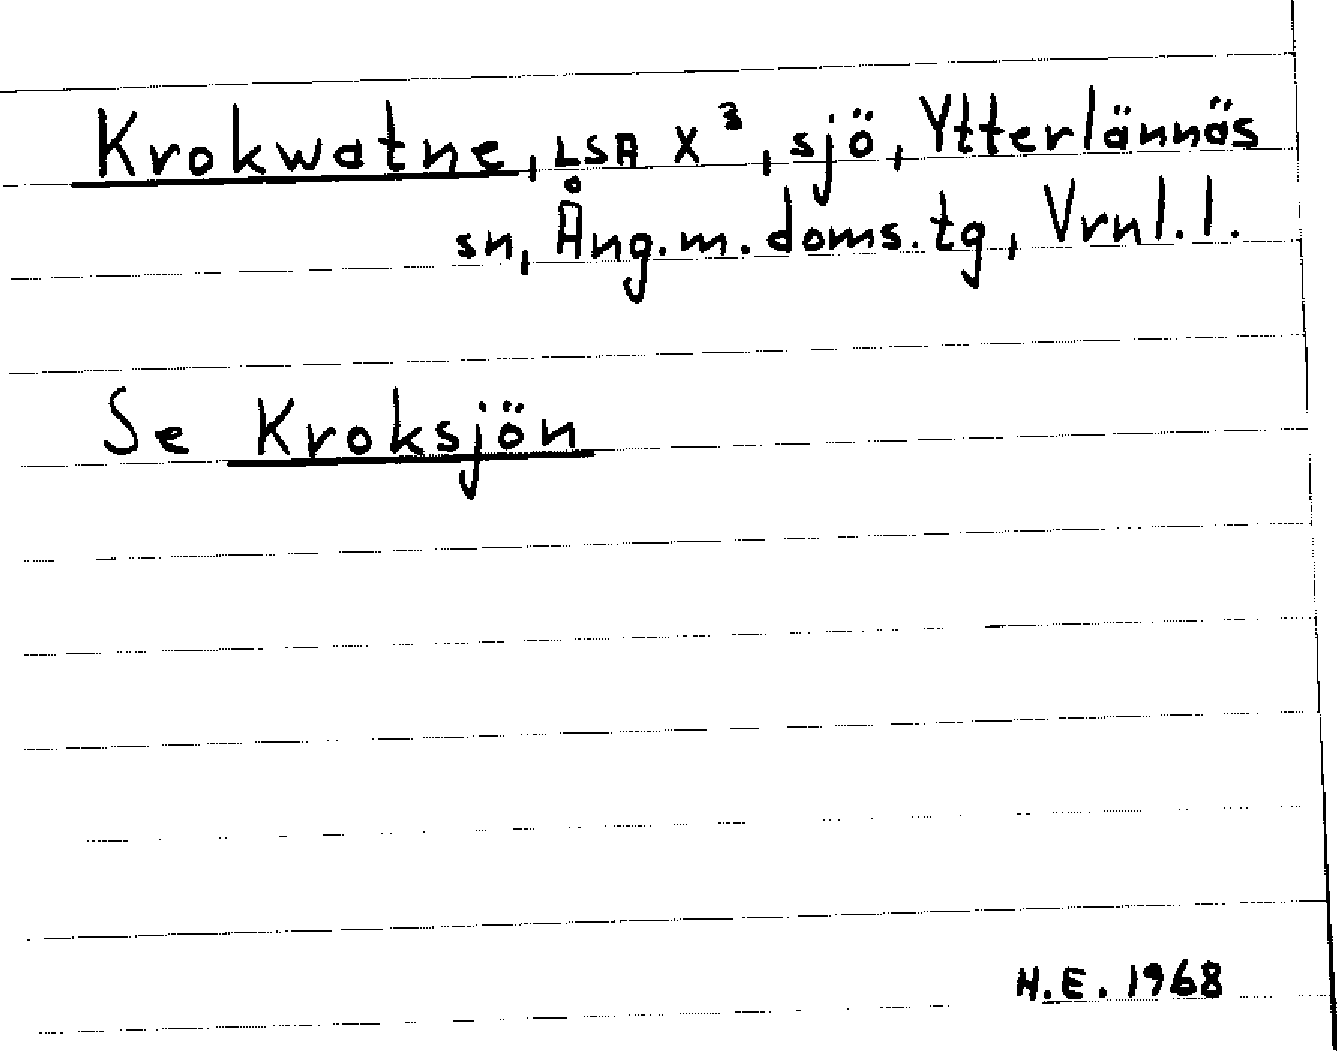 Krokwatne, LSA X³, sjö, Ytterlännäs
sn, Ång.m.doms.tg, Vrnl.l.
Se Kroksjön
H.E. 1968